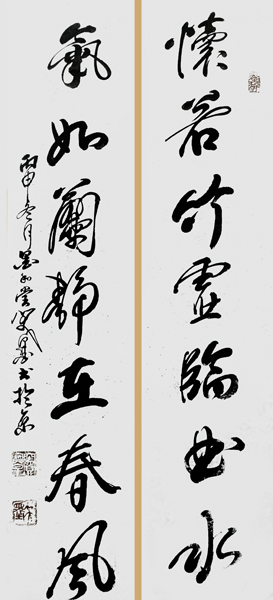 懷若竹虛臨曲水
氣如蘭靜在春風
丙申冬月書於